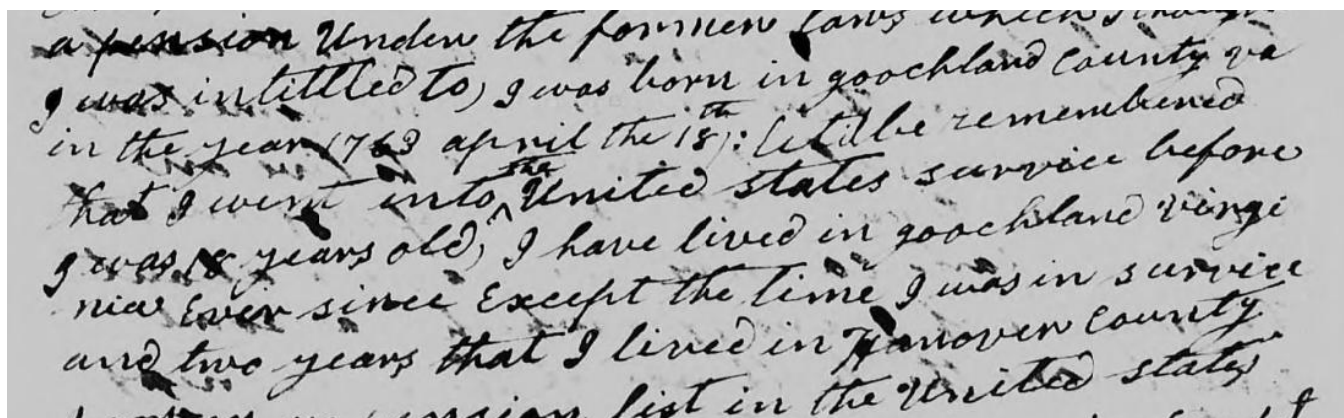 a pension Under the former laws which I
I was intittled to, I was born in goochland County va
in the year 1763 april the 18th: let it be remembered
that I went into the United states survice before
I was 18 years old, I have lived in goochland virgi
nia Ever since Except the time I was in survice
and two years that I lived in Hanover County
pension list in the United states